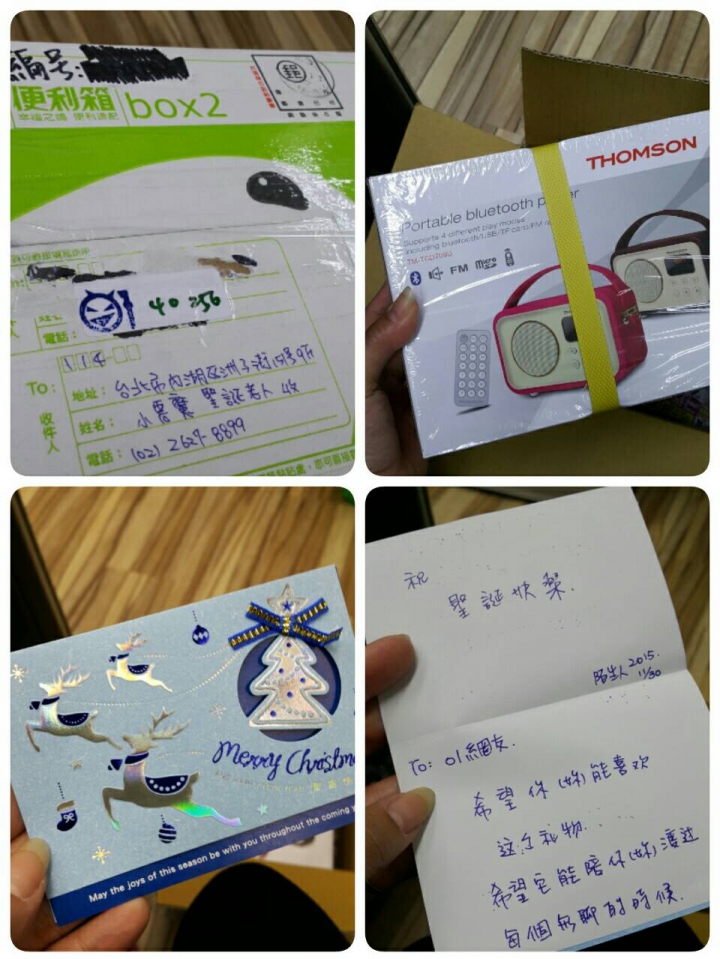 編號:
便利箱
box2
幸福之鴿 便利速配
郵
40 256
電話:
114-
To:
收件人
地址: 台北市內湖區洲子街
姓名: 小惡魔 聖誕老人 收
電話: (02) 2627-8899
THOMSON
Portable bluetooth player
Supports 4 different play modes
including bluetooth/USB/TF card/FM
FM
Merry Christm
May the joys of this season be with you throughout the coming y
祝
聖誕快樂.
陌生人 2015.
11/30
To: 01網友.
希望你(妳)能喜欢
这个礼物.
希望它能陪你(妳)渡过
每個無聊的時候.